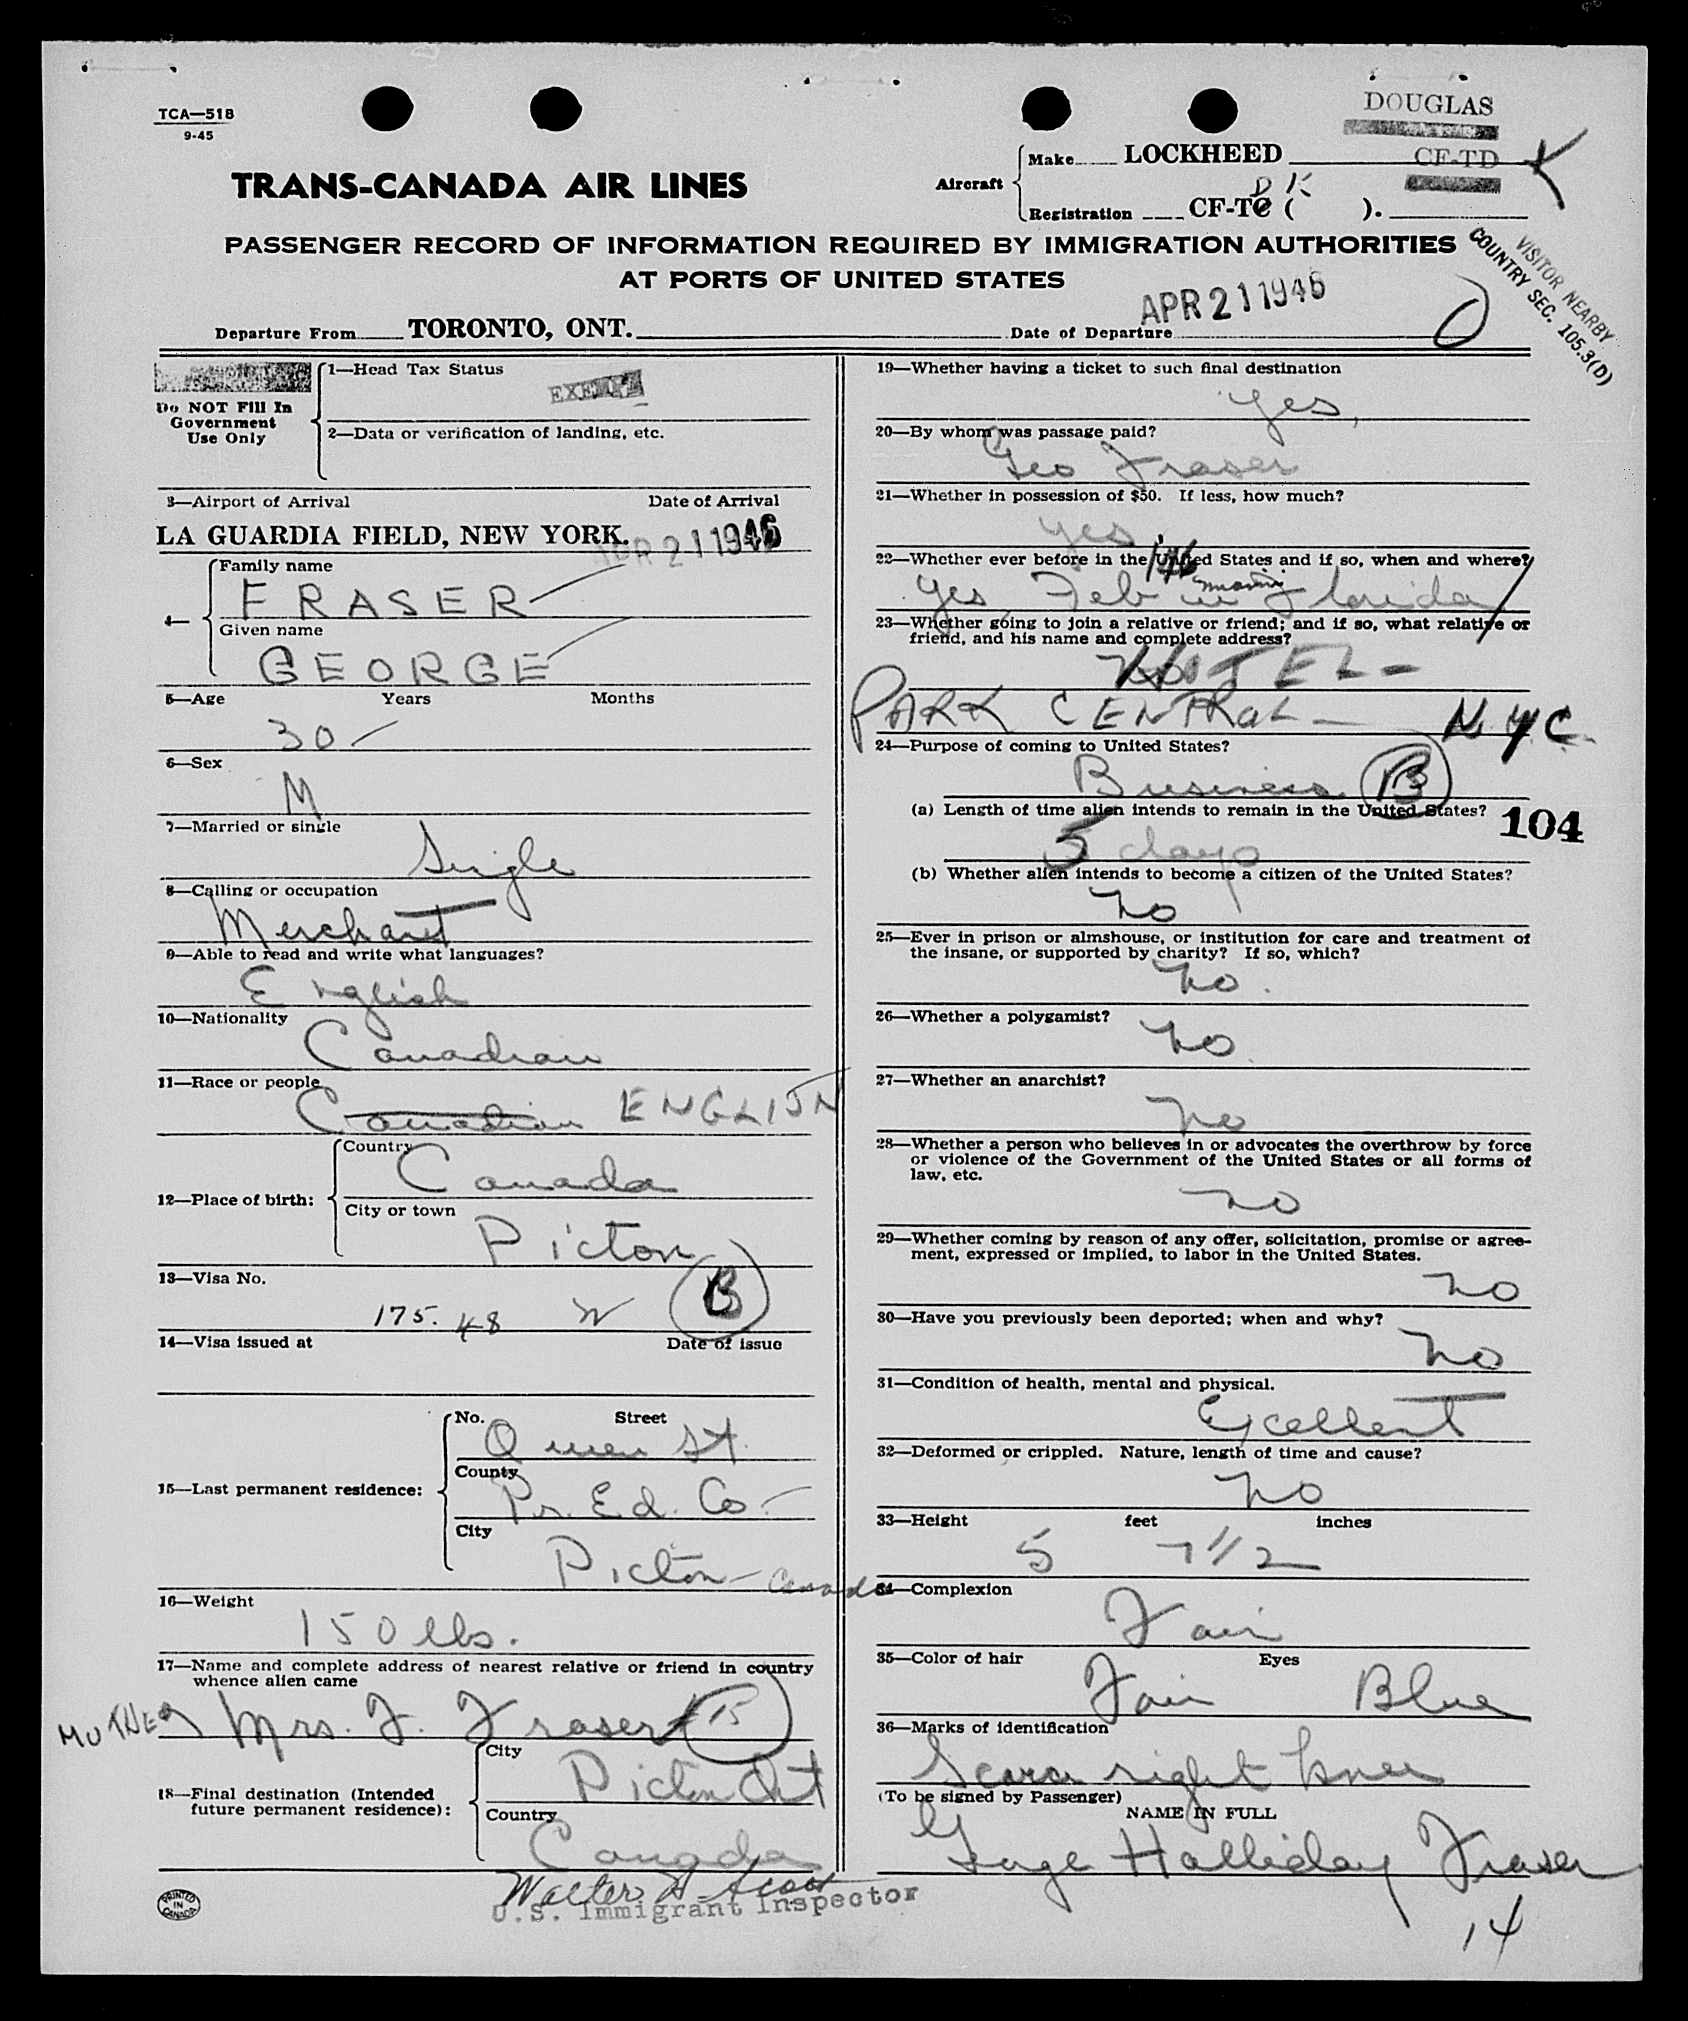 TCA—518
9-45
DOUGLAS
Aircraft
Make LOCKHEED
CF-TD K
TRANS-CANADA AIR LINES
Registration CF-TC ( ).
D K
PASSENGER RECORD OF INFORMATION REQUIRED BY IMMIGRATION AUTHORITIES
AT PORTS OF UNITED STATES
VISITOR NEARBY
COUNTRY SEC. 105.3(D)
Departure From TORONTO, ONT.
Date of Departure APR 21 1946
Do NOT Fill In
Government
Use Only
1—Head Tax Status
EXEMPT
2—Data or verification of landing, etc.
3—Airport of Arrival Date of Arrival
LA GUARDIA FIELD, NEW YORK. APR 21 1946
4—
Family name
FRASER
Given name
GEORGE
5—Age Years Months
30
6—Sex
M
7—Married or single
Single
8—Calling or occupation
Merchant
9—Able to read and write what languages?
English
10—Nationality
Canadian
11—Race or people
Canadian ENGLISH
12—Place of birth:
Country
Canada
City or town
Picton
13—Visa No.
175. 48 B
14—Visa issued at Date of issue
15—Last permanent residence:
No. Street
Queen St.
County
Pr. Ed. Co.
City
Picton - Canada
16—Weight
150 lbs.
17—Name and complete address of nearest relative or friend in country
whence alien came
MOTHER Mrs. F. Fraser B
18—Final destination (Intended
future permanent residence):
City
Picton Ont
Country
Canada
PRINTED
IN
CANADA
Walter A Scott
U.S. Immigrant Inspector
19—Whether having a ticket to such final destination
Yes,
20—By whom was passage paid?
Geo Fraser
21—Whether in possession of $50. If less, how much?
yes.
22—Whether ever before in the United States and if so, when and where?
Yes Feb in Florida
23—Whether going to join a relative or friend; and if so, what relative or
friend, and his name and complete address?
HOTEL -
PARK CENTRAL - N.Y.C.
24—Purpose of coming to United States?
Business B
(a) Length of time alien intends to remain in the United States?
104
5 days
(b) Whether alien intends to become a citizen of the United States?
No
25—Ever in prison or almshouse, or institution for care and treatment of
the insane, or supported by charity? If so, which?
No.
26—Whether a polygamist?
No
27—Whether an anarchist?
No
28—Whether a person who believes in or advocates the overthrow by force
or violence of the Government of the United States or all forms of
law, etc.
No
29—Whether coming by reason of any offer, solicitation, promise or agree-
ment, expressed or implied, to labor in the United States.
No
30—Have you previously been deported; when and why?
No
31—Condition of health, mental and physical.
Excellent
32—Deformed or crippled. Nature, length of time and cause?
No
33—Height feet inches
5 7 1/2
34—Complexion
Fair
35—Color of hair Eyes
Fair Blue
36—Marks of identification
Scar right knee
(To be signed by Passenger)
NAME IN FULL
George Halliday Fraser
14